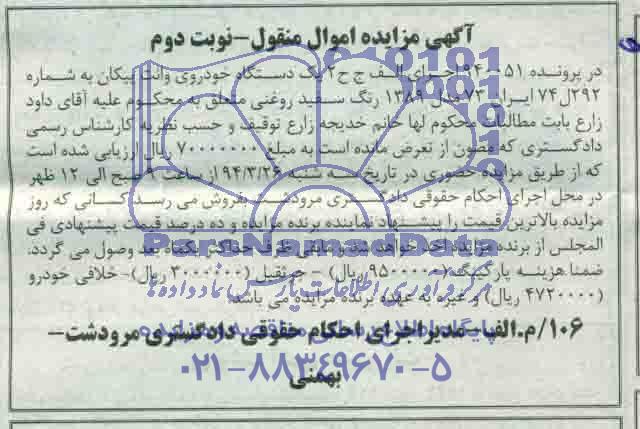 آگهی مزایده اموال منقول-نوبت دوم
در پرونده ۵۱-۹۴ اجرای الف ج ح۲ یک دستگاه خودروی وانت پیکان به شماره
۲۹۲ل۷۴ ایران ۷۳ مدل ۱۳۸۹ رنگ سفید روغنی متعلق به محکوم علیه آقای داود
زارع بابت مطالبات محکوم لها خانم خدیجه زارع توقیف و حسب نظریه کارشناس رسمی
دادگستری که مصون از تعرض مانده است به مبلغ ۷۰۰۰۰۰۰۰ ریال ارزیابی شده است
که از طریق مزایده حضوری در تاریخ سه شنبه ۹۴/۳/۲۶ از ساعت ۹ صبح الی ۱۲ ظهر
در محل اجرای احکام حقوقی دادگستری مرودشت بفروش می رسد کسانی که روز
مزایده بالاترین قیمت را پیشنهاد نماینده برنده مزایده و ده درصد قیمت پیشنهادی فی
المجلس از برنده مزایده اخذ خواهد شد و مابقی ظرف حداکثر یکماه بعد وصول می گردد.
ضمنا هزینه پارکینگ (۹۵۰۰۰۰۰ ریال) - جرثقیل (۳۰۰۰۰۰ ریال)- خلافی خودرو
(۴۷۲۰۰۰۰ ریال) و غیره به عهده برنده مزایده می باشد.
۱۰۶/م.الف-مدیر اجرای احکام حقوقی دادگستری مرودشت-
بهمنی
ParsNamadData
مرکز فرآوری اطلاعات پارس نماد داده ها
۰۲۱-۸۸۳۴۹۶۷۰-۵